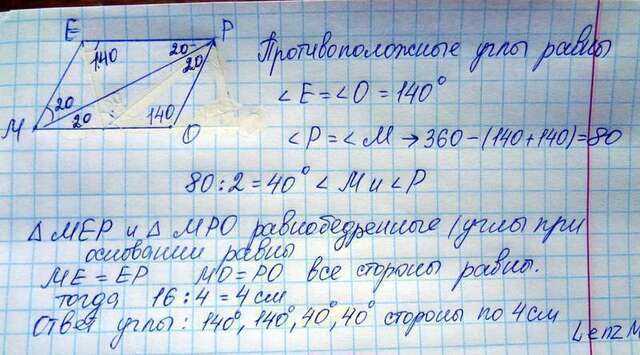 E P
140 20 20
20 20 140
M O
Противоположные углы равны
∠E=∠O=140°
∠P=∠M→360-(140+140)=80
80:2=40° ∠M и ∠P
△MEP и △MPO равнобедренные (углы при
основании равны
ME=EP MO=PO все стороны равны.
тогда 16:4=4см
Ответ углы: 140°, 140°, 40°, 40° стороны по 4см
LenzM